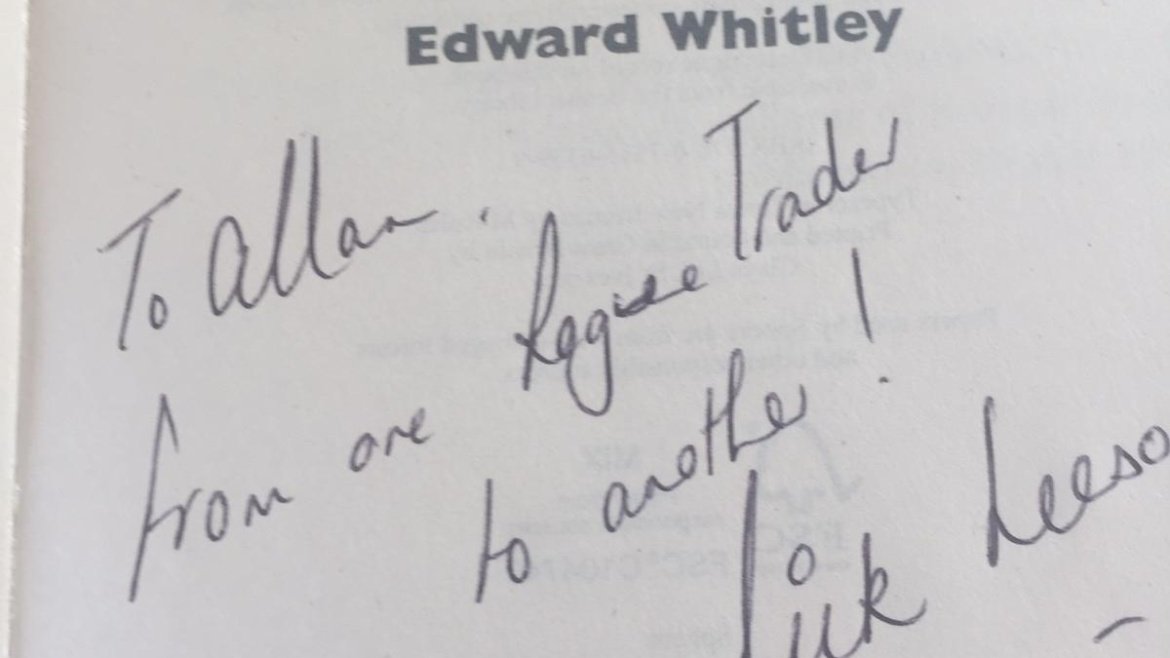 Edward Whitley
To Allan.
from one Rogue Trader
to another!
Nick Leeso